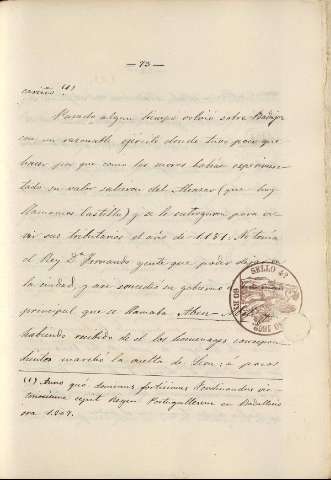 — 73 —
cariño (1)
Pasado algun tiempo volvió sobre Badajoz
con un razonable ejército donde tuvo poco que
hacer por que como los moros habian esperimen-
tado su valor salieron del Alcazar (que hoy
llamamos Castillo) y se le entregaron para
ser sus tributarios el año de 1181. No tenia
el Rey Dn Fernando gente que poder dejar en
la ciudad, y asi concedio su gobierno
principal que se llamaba Aben-
habiendo recibido de el los homenages correspon-
dientes marchó la vuelta de Leon; á pocos
(1) Anno quó
cepit Regem Portugallensem en Badallocio
era 1207.
SELLO 9º